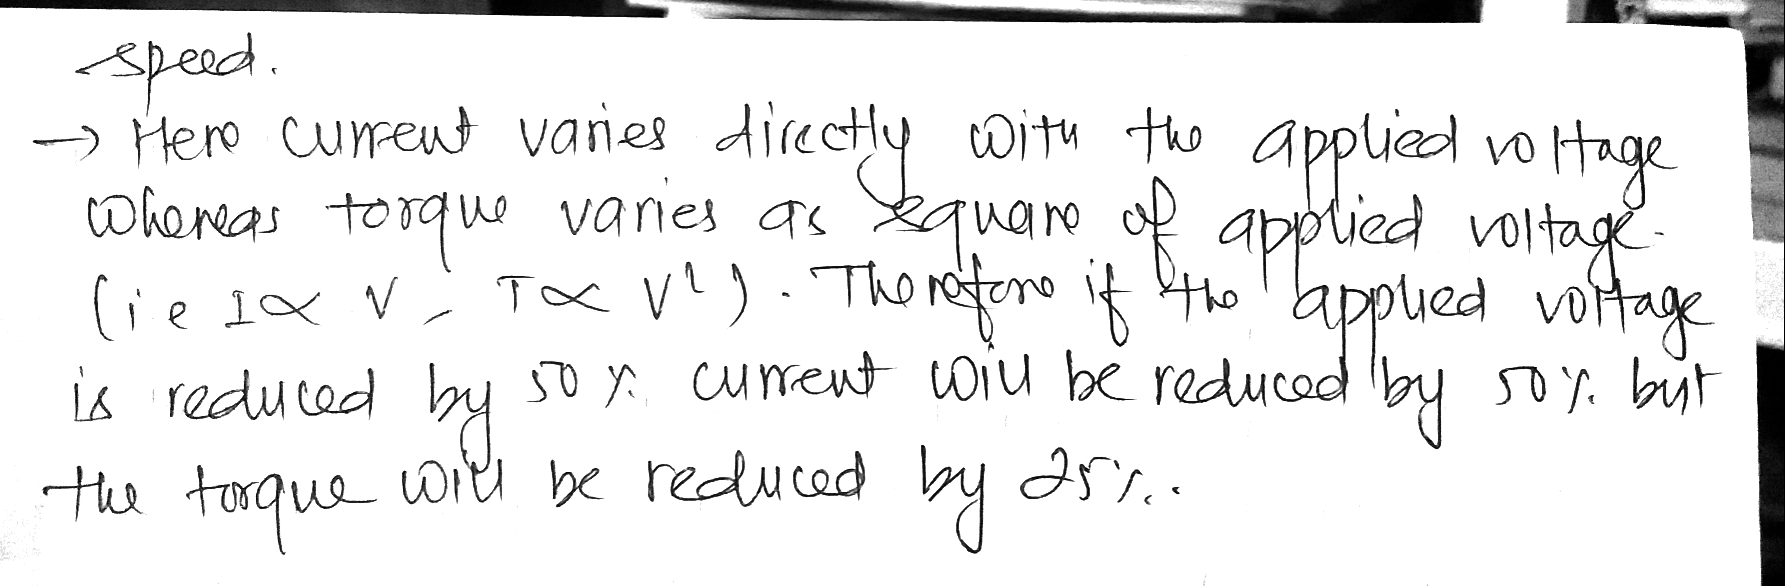 speed.
→ Here current varies directly with the applied voltage
whereas torque varies as square of applied voltage.
(i e I ∝ V, T ∝ V²). Therefore if the applied voltage
is reduced by 50 %. current will be reduced by 50%. but
the torque will be reduced by 25%..